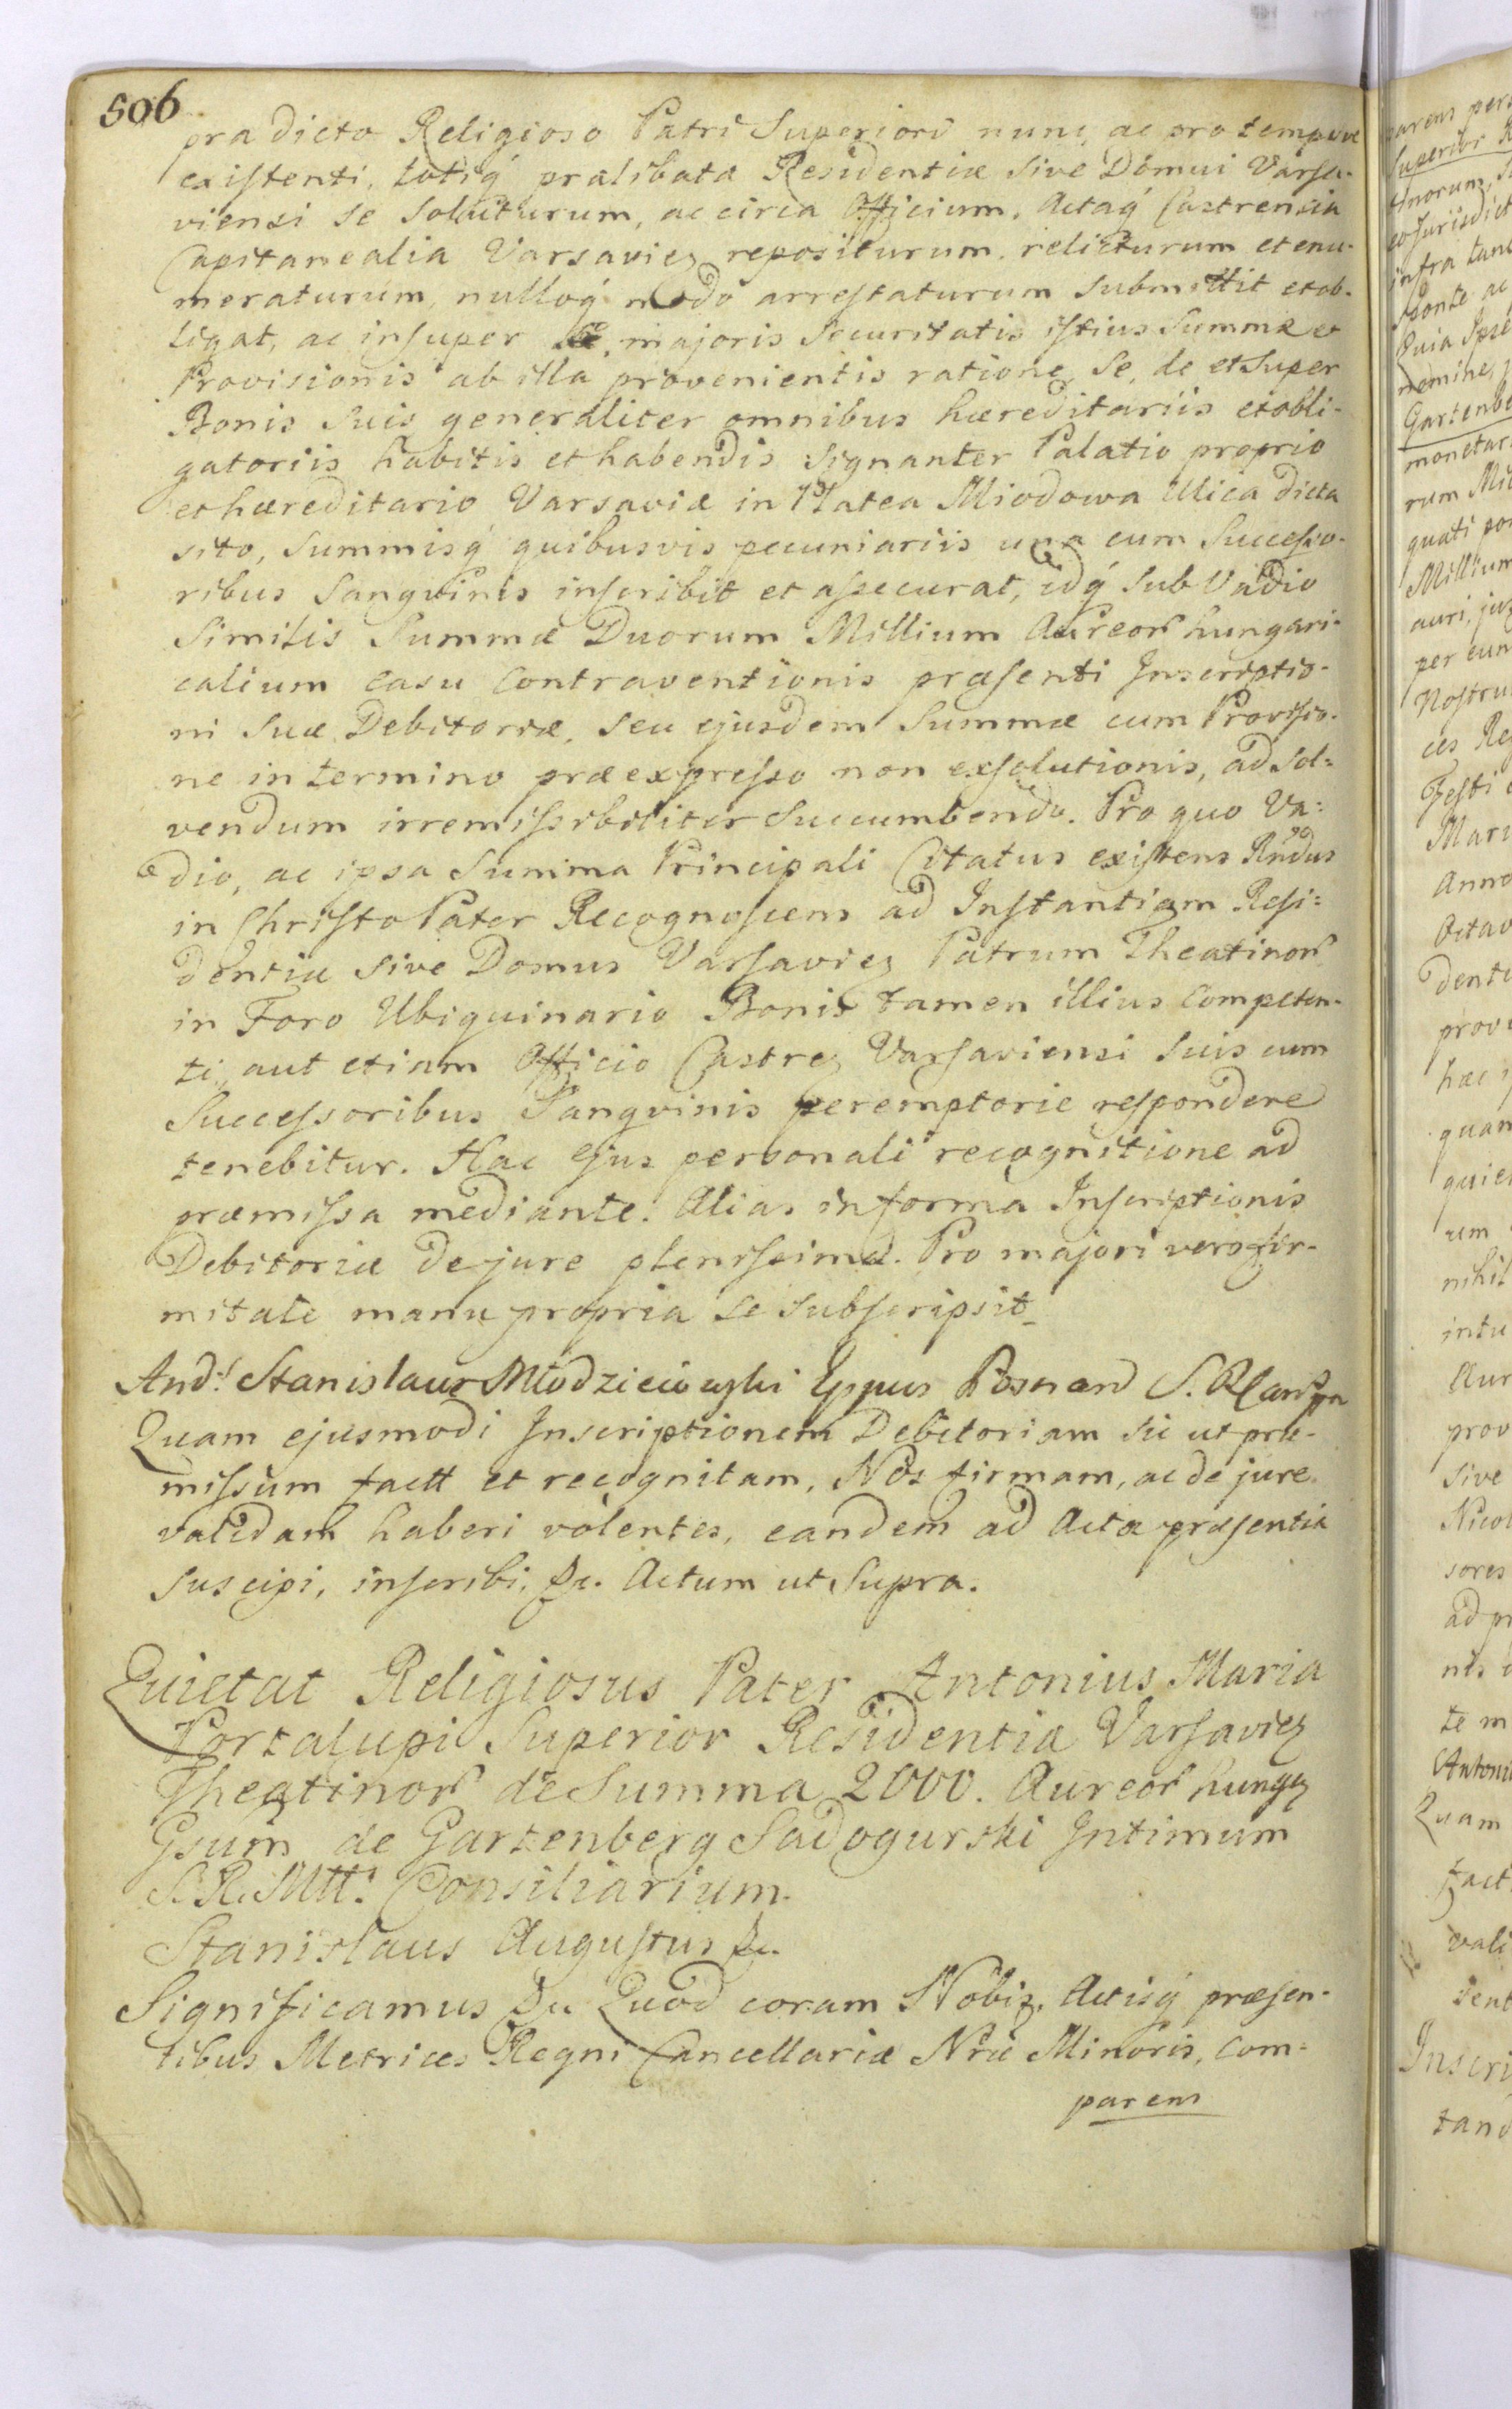 506
prædicto Religioso Patri Superiori nunc, ac pro tempore
existenti, totiq́ prælibatæ Residentiæ sive Domui Varsa-
viensi se soluturum, ac circa Officium, Actaq́ Castrensia
Capitanealia Varsavien repositurum, relicturum et enu-
meraturum, nulloq́ modo arrestaturum submittit et ob-
ligat, ac insuper majoris securitatis istius Summæ et
Provisionis ab illa provenientis ratione, Se, de et super
Bonis suis generaliter omnibus hæreditariis et obli-
gatoriis habitis et habendis signanter Palatio proprio
et hæreditario Varsaviæ in Platea Miodowa Ulica dicta
sito, Summisq́ quibusvis pecuniariis una cum Successo-
ribus Sangvinis inscribit et assecurat, idq́ sub Vadio
Similis Summæ Duorum Millium Aureoru hungari-
calium casu Contraventionis præsenti Inscriptio-
ni suæ Debitoriæ, seu ejusdem Summæ cum Provisio-
ne in termino præexpresso non exsolutionis, ad sol=
vendum irremissibiliter succumbendo. Pro quo Va=
dio, ac ipsa Summa Principali Citatus existens Rndus
in Christo Pater Recognoscens ad Instantiam Resi=
dentiæ sive Domus Varsavien Patrum Theatinoru
in Foro Ubiquinario Bonis tamen illius Competen-
ti, aut etiam Officio Castren Varsaviensi suis cum
Successoribus Sangvinis peremptorie respondere
tenebitur. Hac ejus personali recognitione ad
præmissa mediante. Alias in forma Inscriptionis
Debitoriæ de jure plenissima. Pro majori vero fir-
mitate manu propria se subscripsit_
And: Stanislaus Młodzieiowski Eppus Posnan
Quam ejusmodi Inscriptionem Debitoriam sic ut præ-
missum factt et recognitam, Nos firmam, ac de jure
validam haberi volentes, eandem ad Acta præsentia
suscipi, inscribi, &c. Actum ut Supra.
Quietat Religiosus Pater Antonius Maria
Portalupi Superior Residentiæ Varsavien
Theatinoru de Summa 2000. Aureoru hungen
Gsum de Gartenberg Sadogurski Intimum
S. R. Mtt: Consiliarium.
Stanislaus Augustus &c.
Significamus &c Quod coram Nobis, Actisq́ præsen-
tibus Metrices Regni Cancellariæ Nræ Minoris, com-
parens
parens pers
Superior R
tinorum, 
et Jurisdict
infra tan
sponte ac
Quia Ipse
nemine,
Gartenbe
monetar
rum Mil
quati po
Millium
auri, jux
per eun
Nostru
ces Re
Festi
Mari
Anno
Octav
denti
prov
hac
quam
quie
um
nihil
intu
Aur
prov
sive
Nicol
sores
ad pr
nis
te m
Antoni
Quam
fact
vali
sent
Inscri
tand